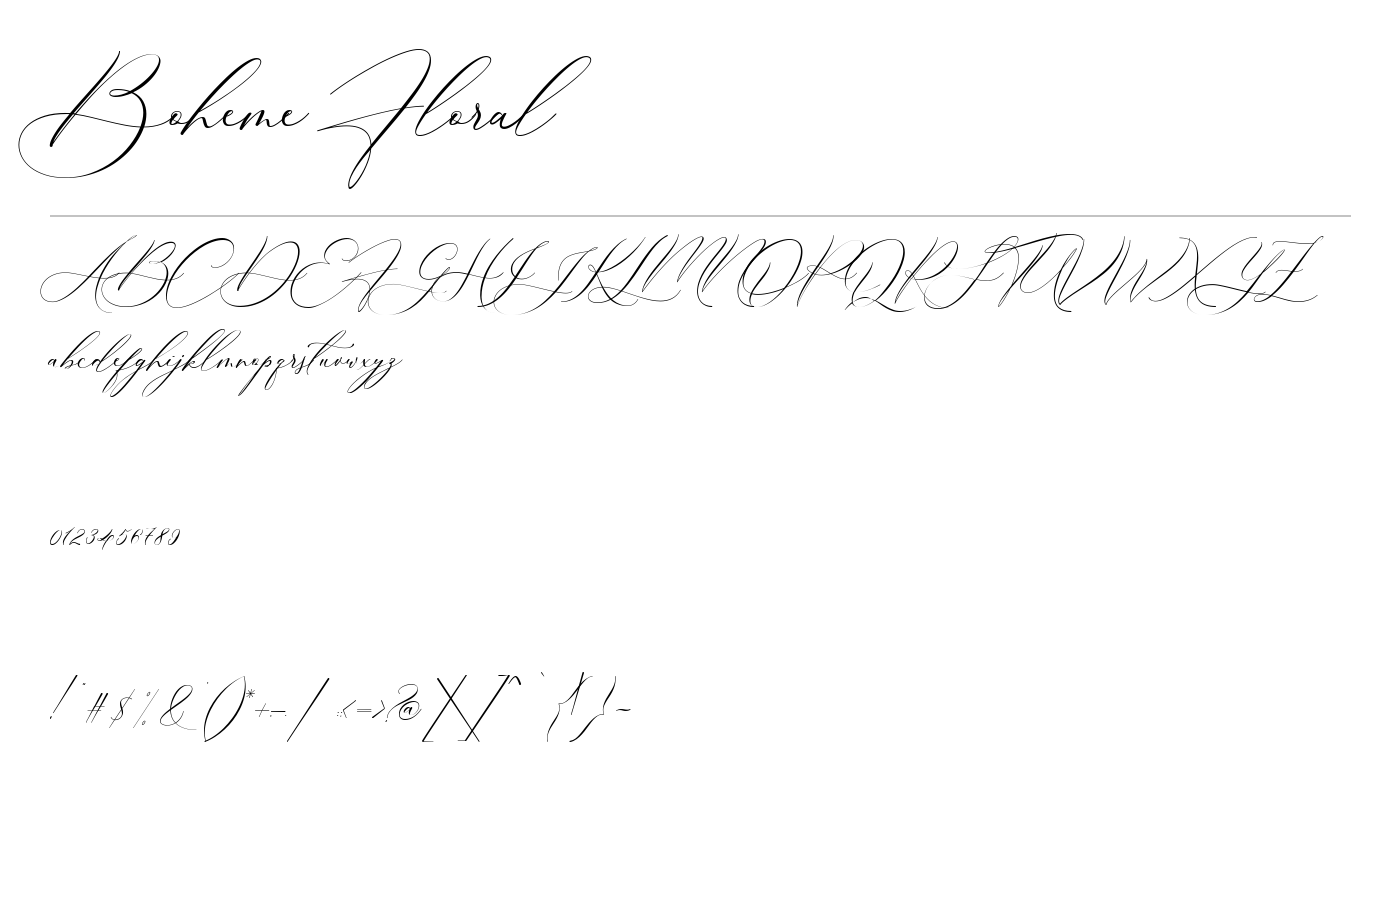 Boheme Floral
ABCDEFGHIJKLMNOPQRSTUVWXYZ
abcdefghijklmnopqrstuvwxyz
0123456789
!"#$%&'()*+,-./:;<=>?@[\]^_`{|}~